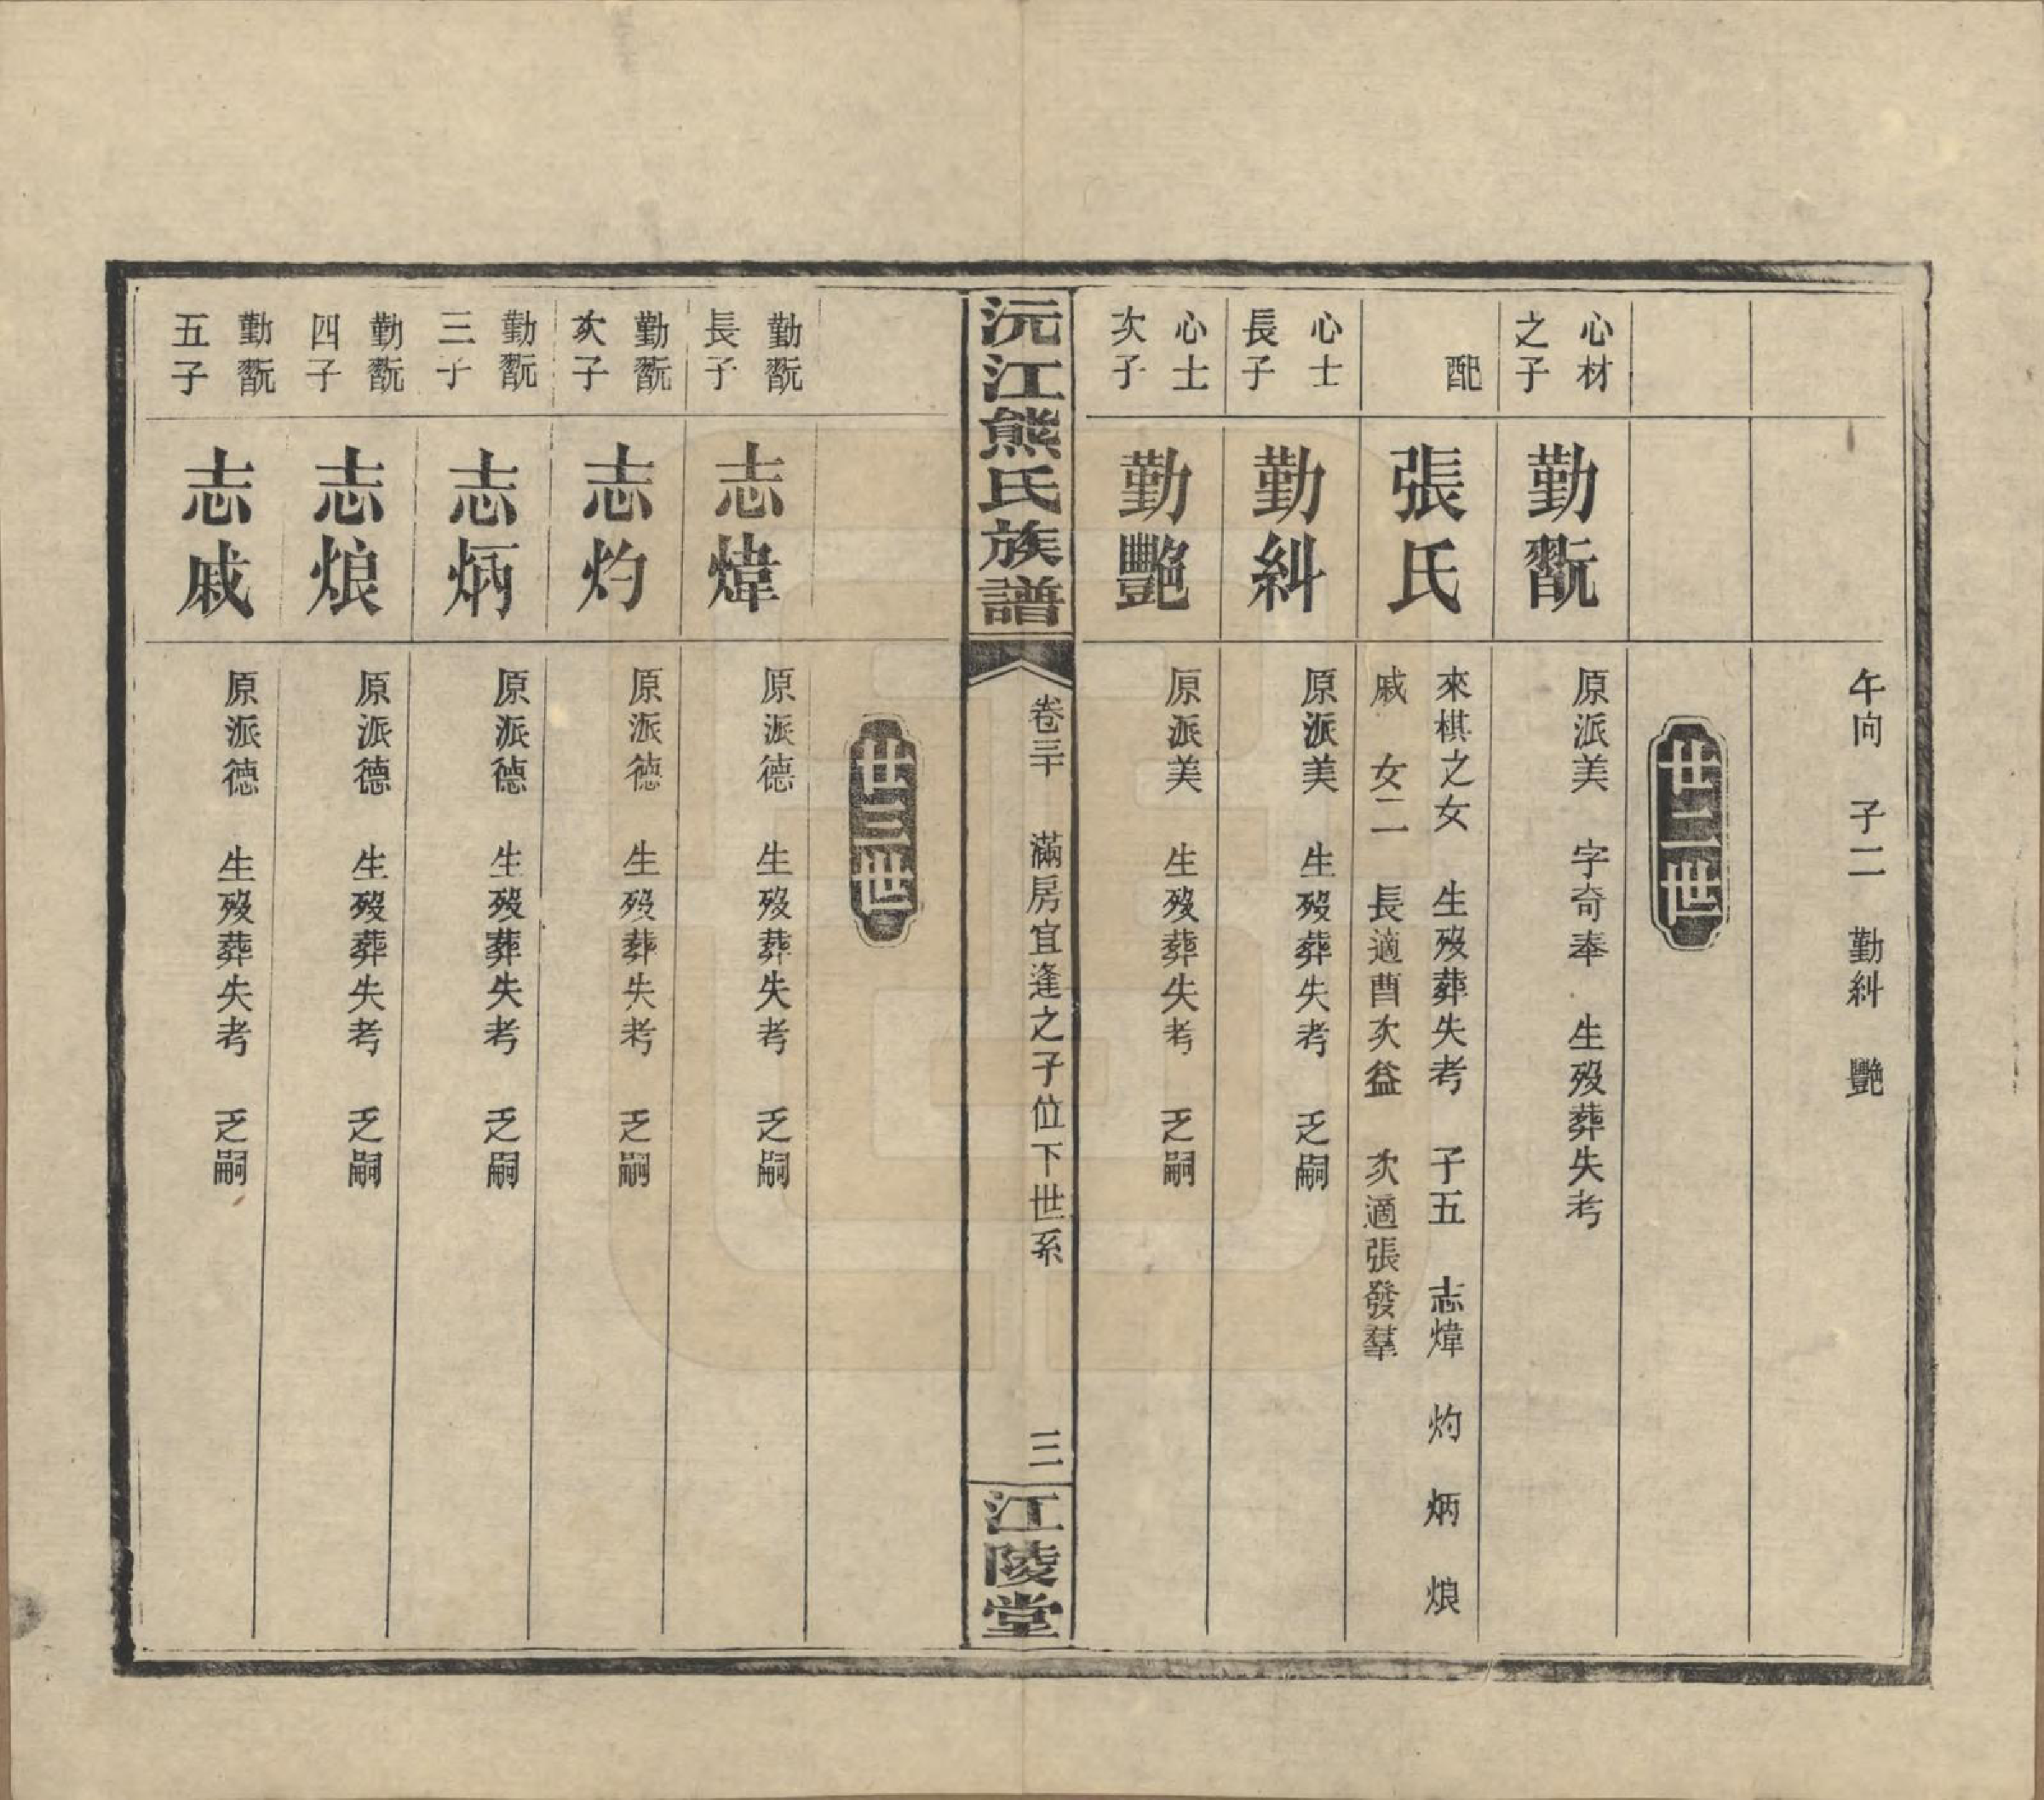 午向　子二　勤糾　艷
世二世
心材
之子
勤翫
原派美　字奇奉　生歿葬失考
配
張氏
來棋之女　生歿葬失考　子五　志煒　灼　炳　烺
戚　女二　長適酉次益　次適張發羣
心士
長子
勤糾
原派美　生歿葬失考　乏嗣
心士
次子
勤艷
原派美　生歿葬失考　乏嗣
沅江熊氏族譜
卷三十　滿房宜逢之子位下世系　三
江陵堂
世三世
勤翫
長子
志煒
原派德　生歿葬失考　乏嗣
勤翫
次子
志灼
原派德　生歿葬失考　乏嗣
勤翫
三子
志炳
原派德　生歿葬失考　乏嗣
勤翫
四子
志烺
原派德　生歿葬失考　乏嗣
勤翫
五子
志戚
原派德　生歿葬失考　乏嗣